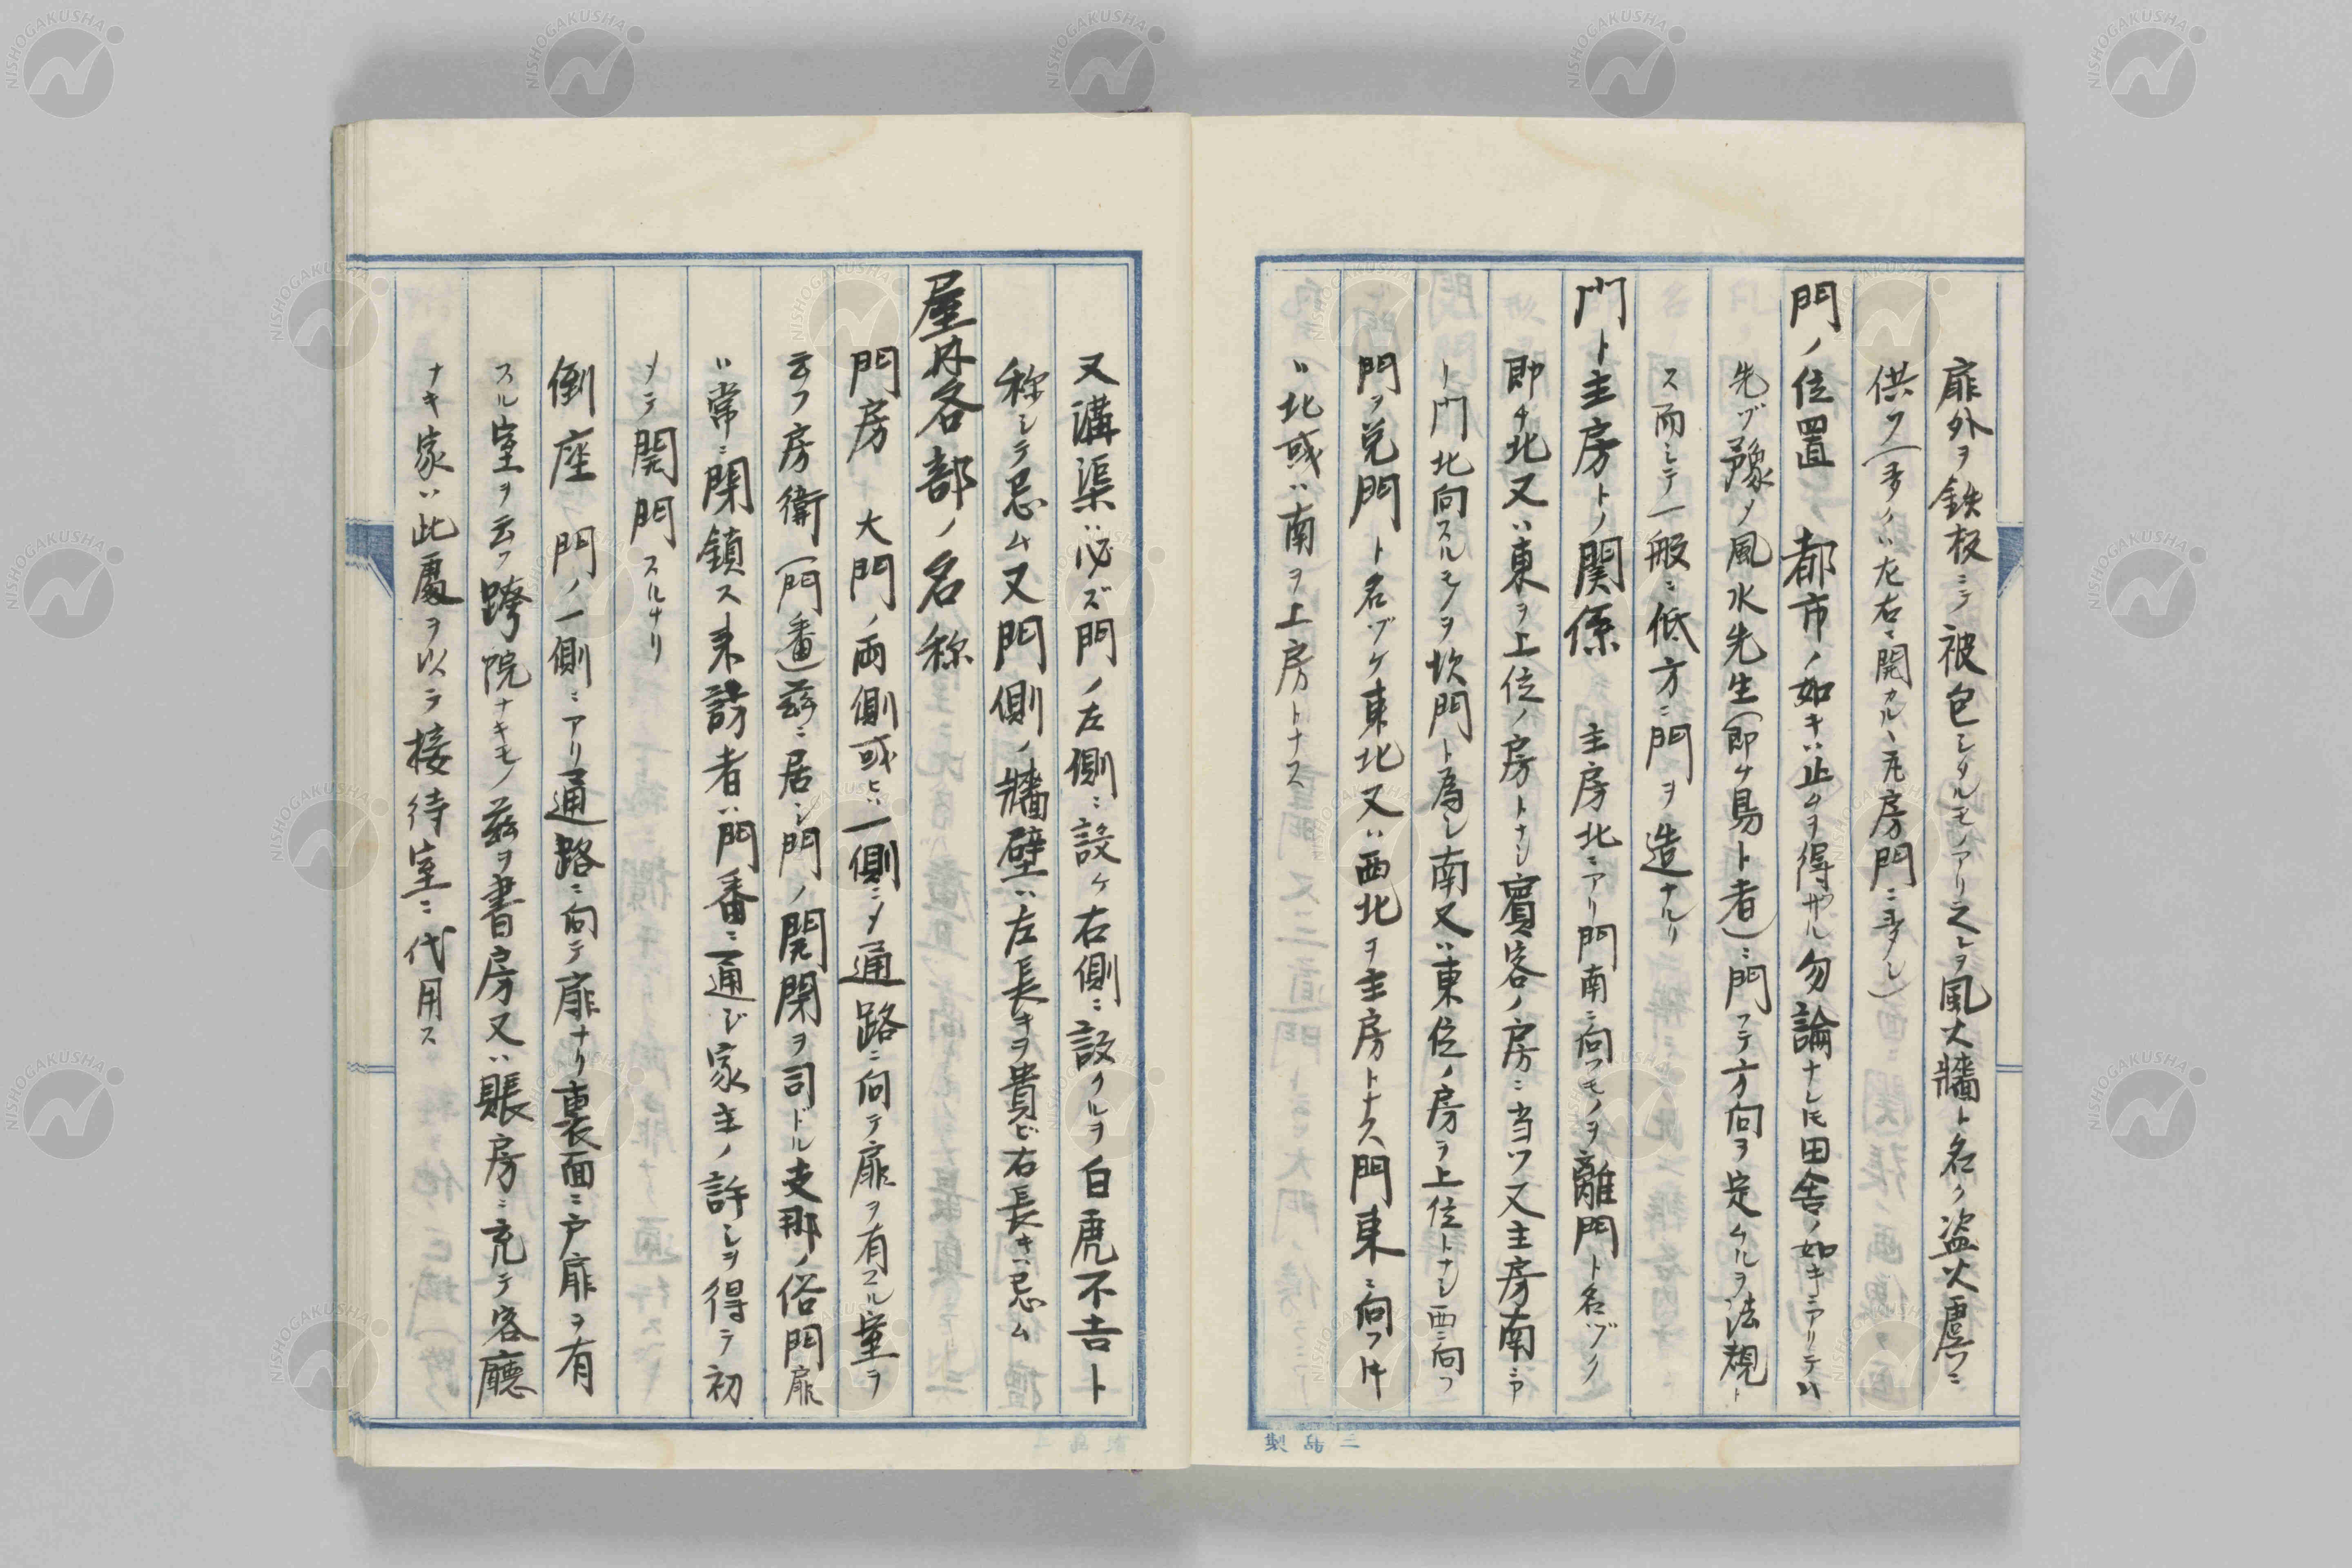 扉外ヲ鉄板ニテ被包シタルモノアリ之レヲ風火牆ト名ク盗火虞フニ
供フ(多クハ左右ニ開カル丶
門ノ位置 都市ノ如キハ止ムヲ得ザル勿論ナレ𪜈田舎ノ如キニアリテハ
先ヅ豫メ風水先生(即チ易卜者)ニ問フテ方向ヲ定ムルヲ法規ト
ス而シテ一般ニ低方ニ門ヲ造ナルリ
門ト主房トノ関係 主房北ニアリ門南ニ向フモノヲ離門ト名ヅク
即チ北又ハ東ヲ上位ノ房トナシ賓客ノ房ニ当ツ又主房南ニア
リ門北向スルモノヲ坎門ト為シ南又ハ東位ノ房ヲ上位トナシ西ニ向フ
門ヲ兌門ト名ヅケ東北又ハ西北ヲ主房トナス門東ニ向フ片
ハ北或ハ南ヲ上房トナス
又溝渠ハ必ズ門ノ左側ニ設ケ右側ニ設クルヲ白虎不吉ト
称シテ忌ム又門側ノ牆壁ハ左長キヲ貴ビ右長キハ忌ム
屋内各部ノ名称
門房 大門ノ両側或ヒハ一側ニメ通路ニ向テ扉ヲ有スル室ヲ
云フ房衛(門番)茲ニ居シ門ノ開閉ヲ司ドル支那ノ俗門扉
ハ常ニ閉鎖ス来訪者ハ門番ニ通ジ家主ノ許シヲ得テ初
メテ開門スルナリ
倒座 門ノ一側ニアリ通路ニ向テ扉ナリ裏面ニ戸扉ヲ有
スル室ヲ云フ跨院ナキモノ茲ヲ書房又ハ賬房ニ充テ客廳
ナキ家ハ此處ヲ以テ接待室ニ代用ス